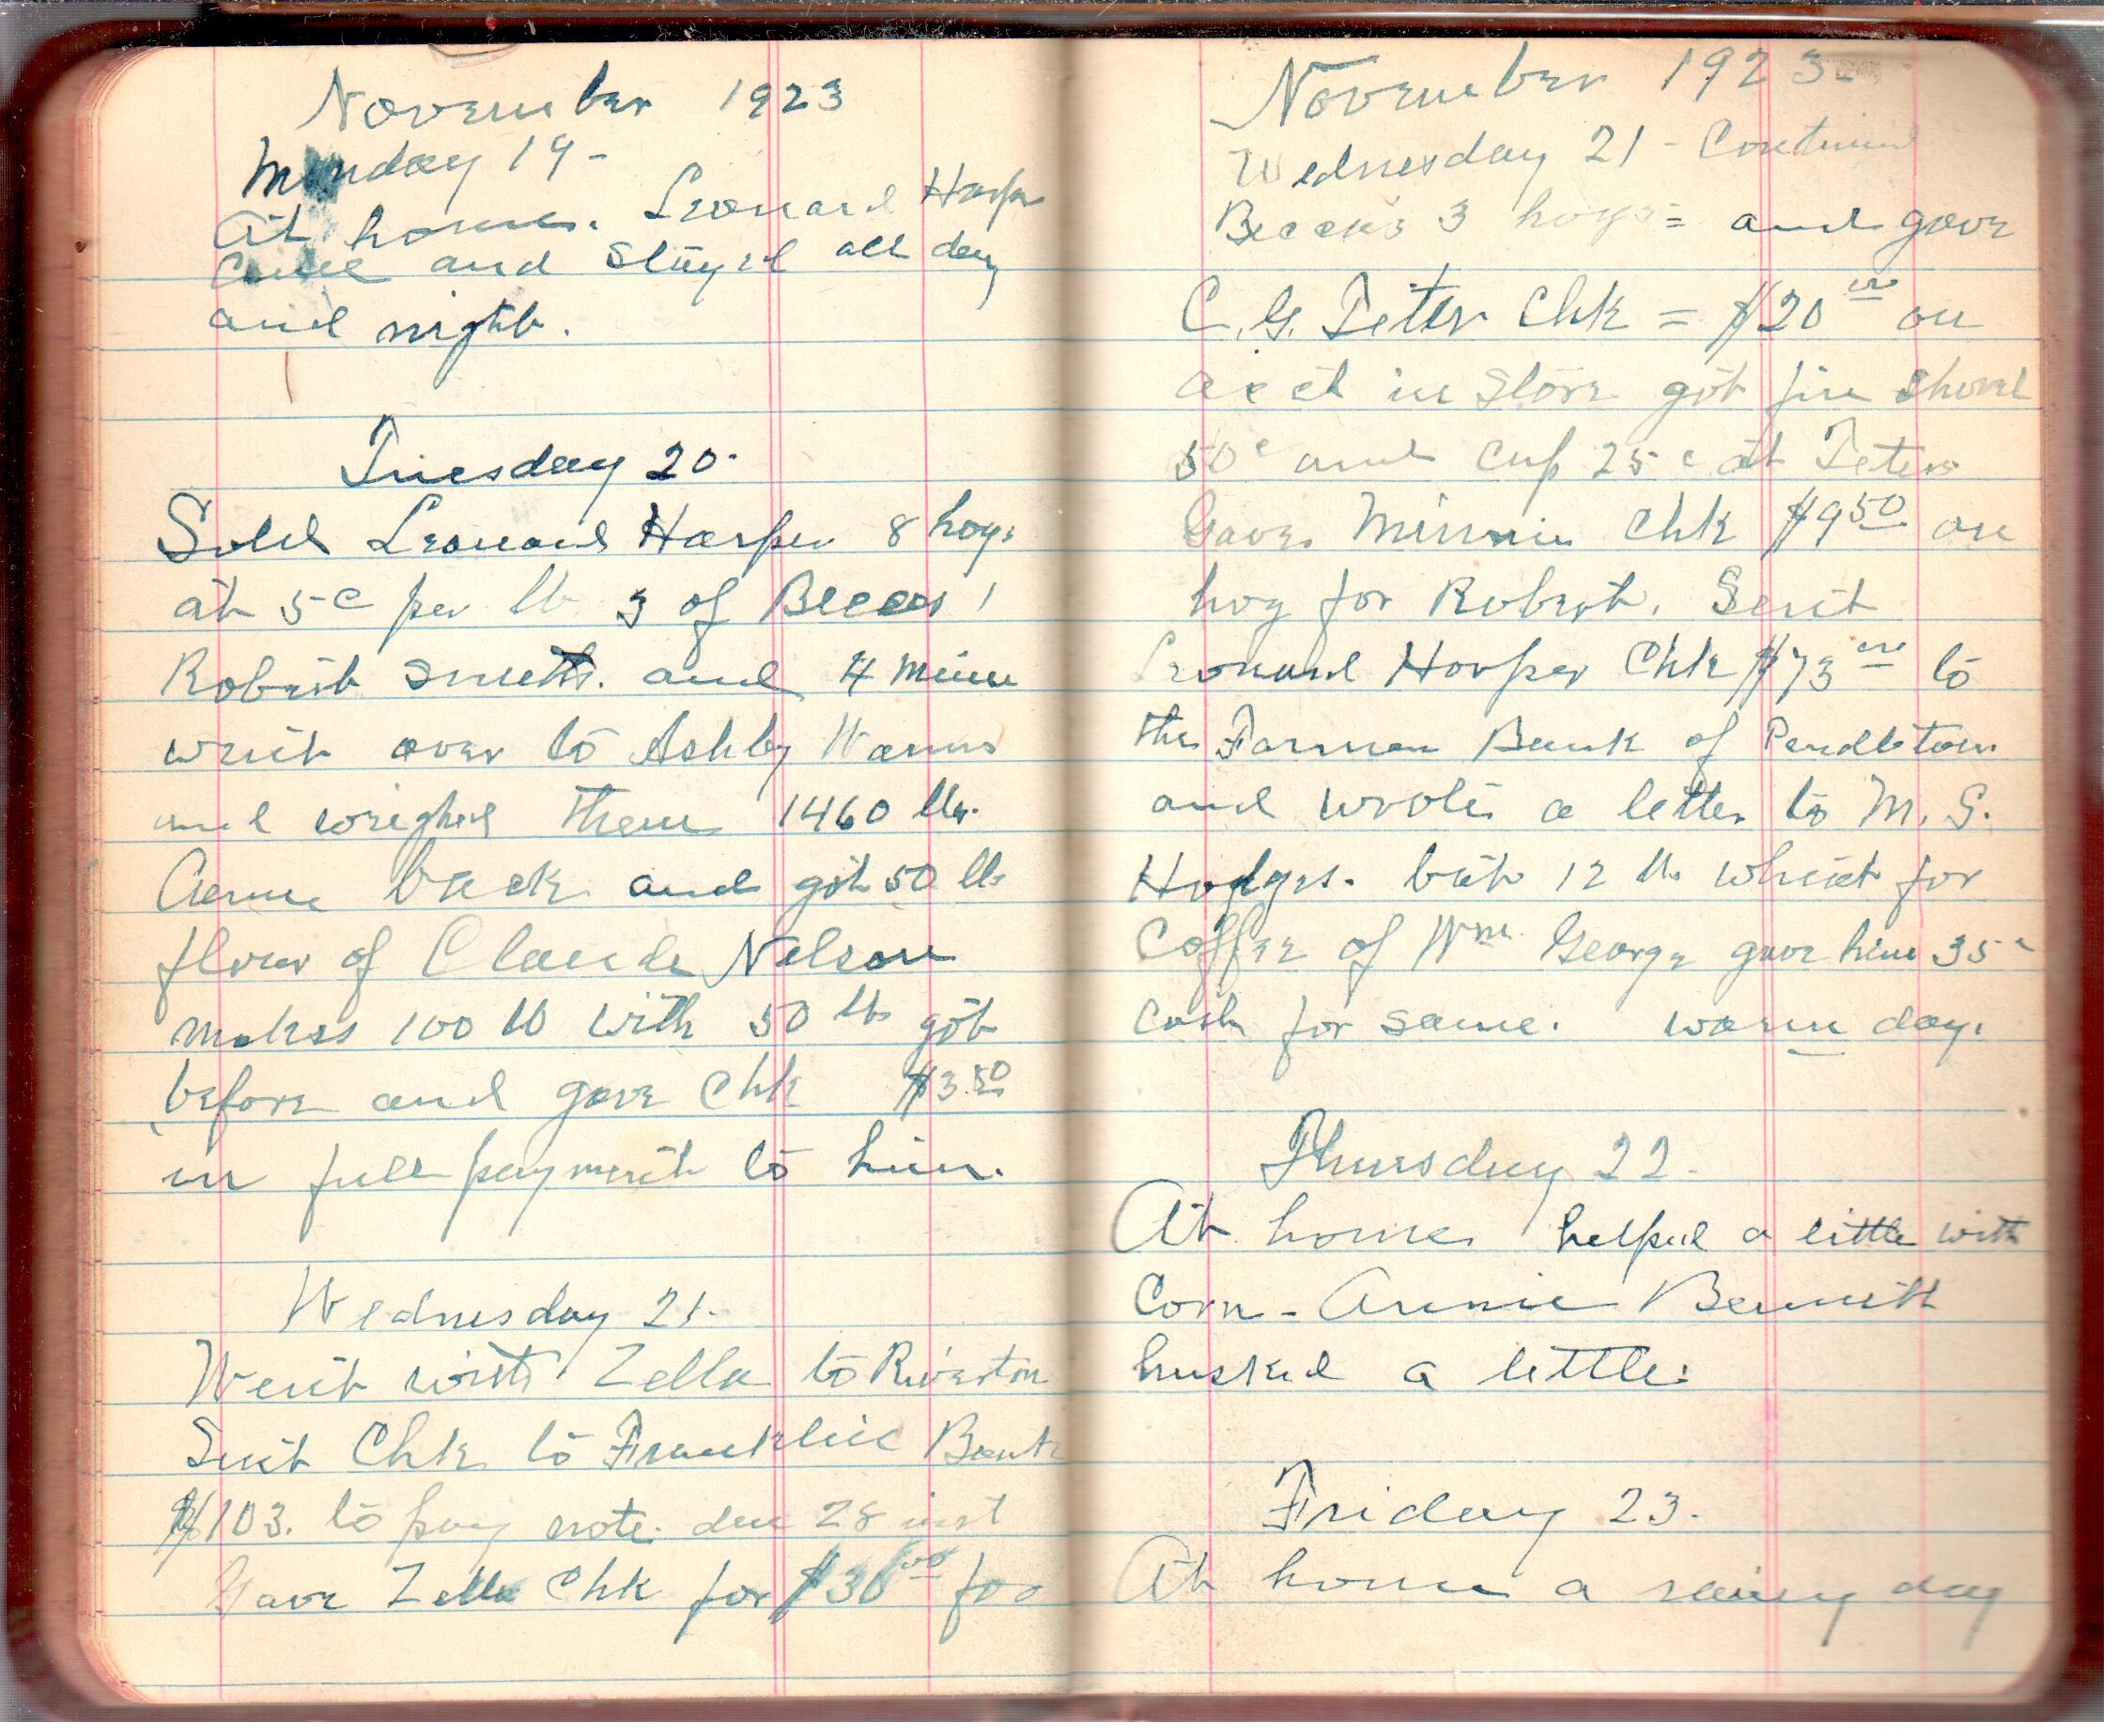 November 1923
Monday 19-
At home. Leonard Harper
came and stayed all day
and night.
Tuesday 20.
Sold Leonard Harper 8 hogs
at 5c per lb 3 of Beccas 1
Robert Smith. and 4 mine
went over to Ashby Warns
and weighed them 1460 lbs.
Came back and got 50 lbs
flour of Claude Nelson
makes 100 lb with 50 lbs got
before and gave Chk $3.50
in full payment to him.
Wednesday 21.
Went with Zella to Riverton
Sent Chk to Franklin Bank
$103. to pay note due 28 inst
Gave Zella Chk for $30 00 for
November 1923-
Wednesday 21 - Continued
Becca's 3 hogs = and gave
C. G. Teter Chk = $20 00 on
acct in store got fire shovel
50c and cup 25c at Teters
Gave Minnie Chk $9 50 on
hog for Robert. Sent
Leonard Harper Chk $73 00 to
the Farmer Bank of Pendleton
and wrote a letter to M. S.
Hodges. 12 lb wheat for
Coffee of Wm. George gave him 35c
cash for same. warm day.
Thursday 22-
At home helped a little with
Corn - Annie Bennett
husked a little.
Friday 23.
At home a rainy day